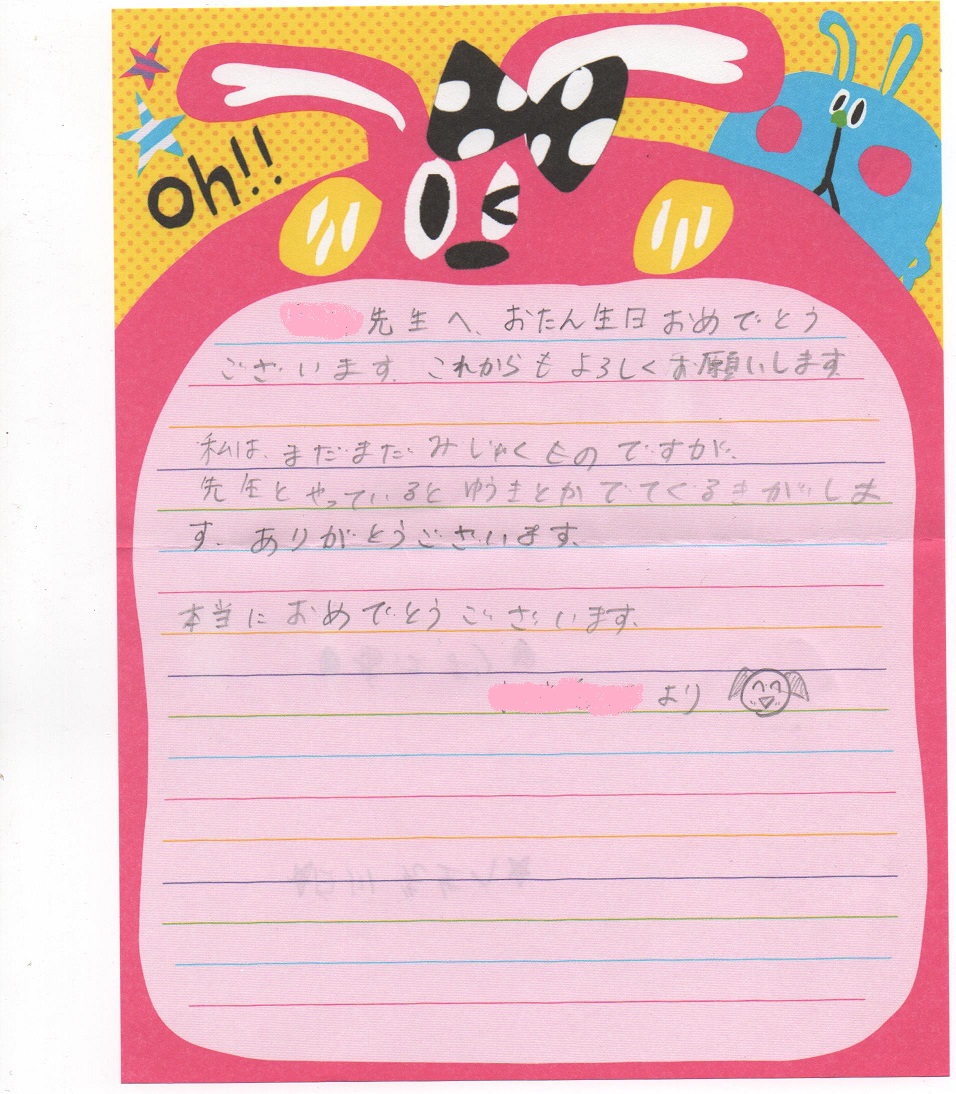 Oh!!
先生へ、おたん生日おめでとう
ございます。これからもよろしくお願いします
私は、まだまだみじゅくものですが、
先生とやっているとゆうきとかでてくるきがしま
す。ありがとうございます。
本当におめでとうございます。
より